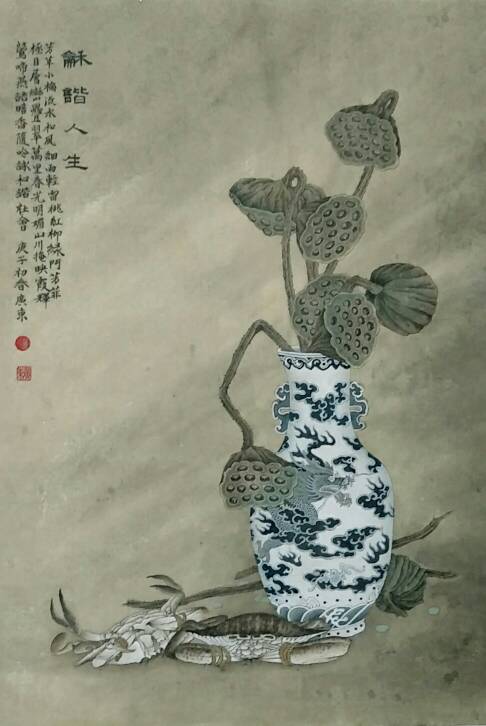 龢諧人生
芳草小橋流水和風細雨輕雷桃紅柳綠鬥芳菲
極目層巒疊翠萬里春光明媚山川掩映霞輝
鶯啼燕語暗香隨吟詠和諧社會 庚子初春廣東